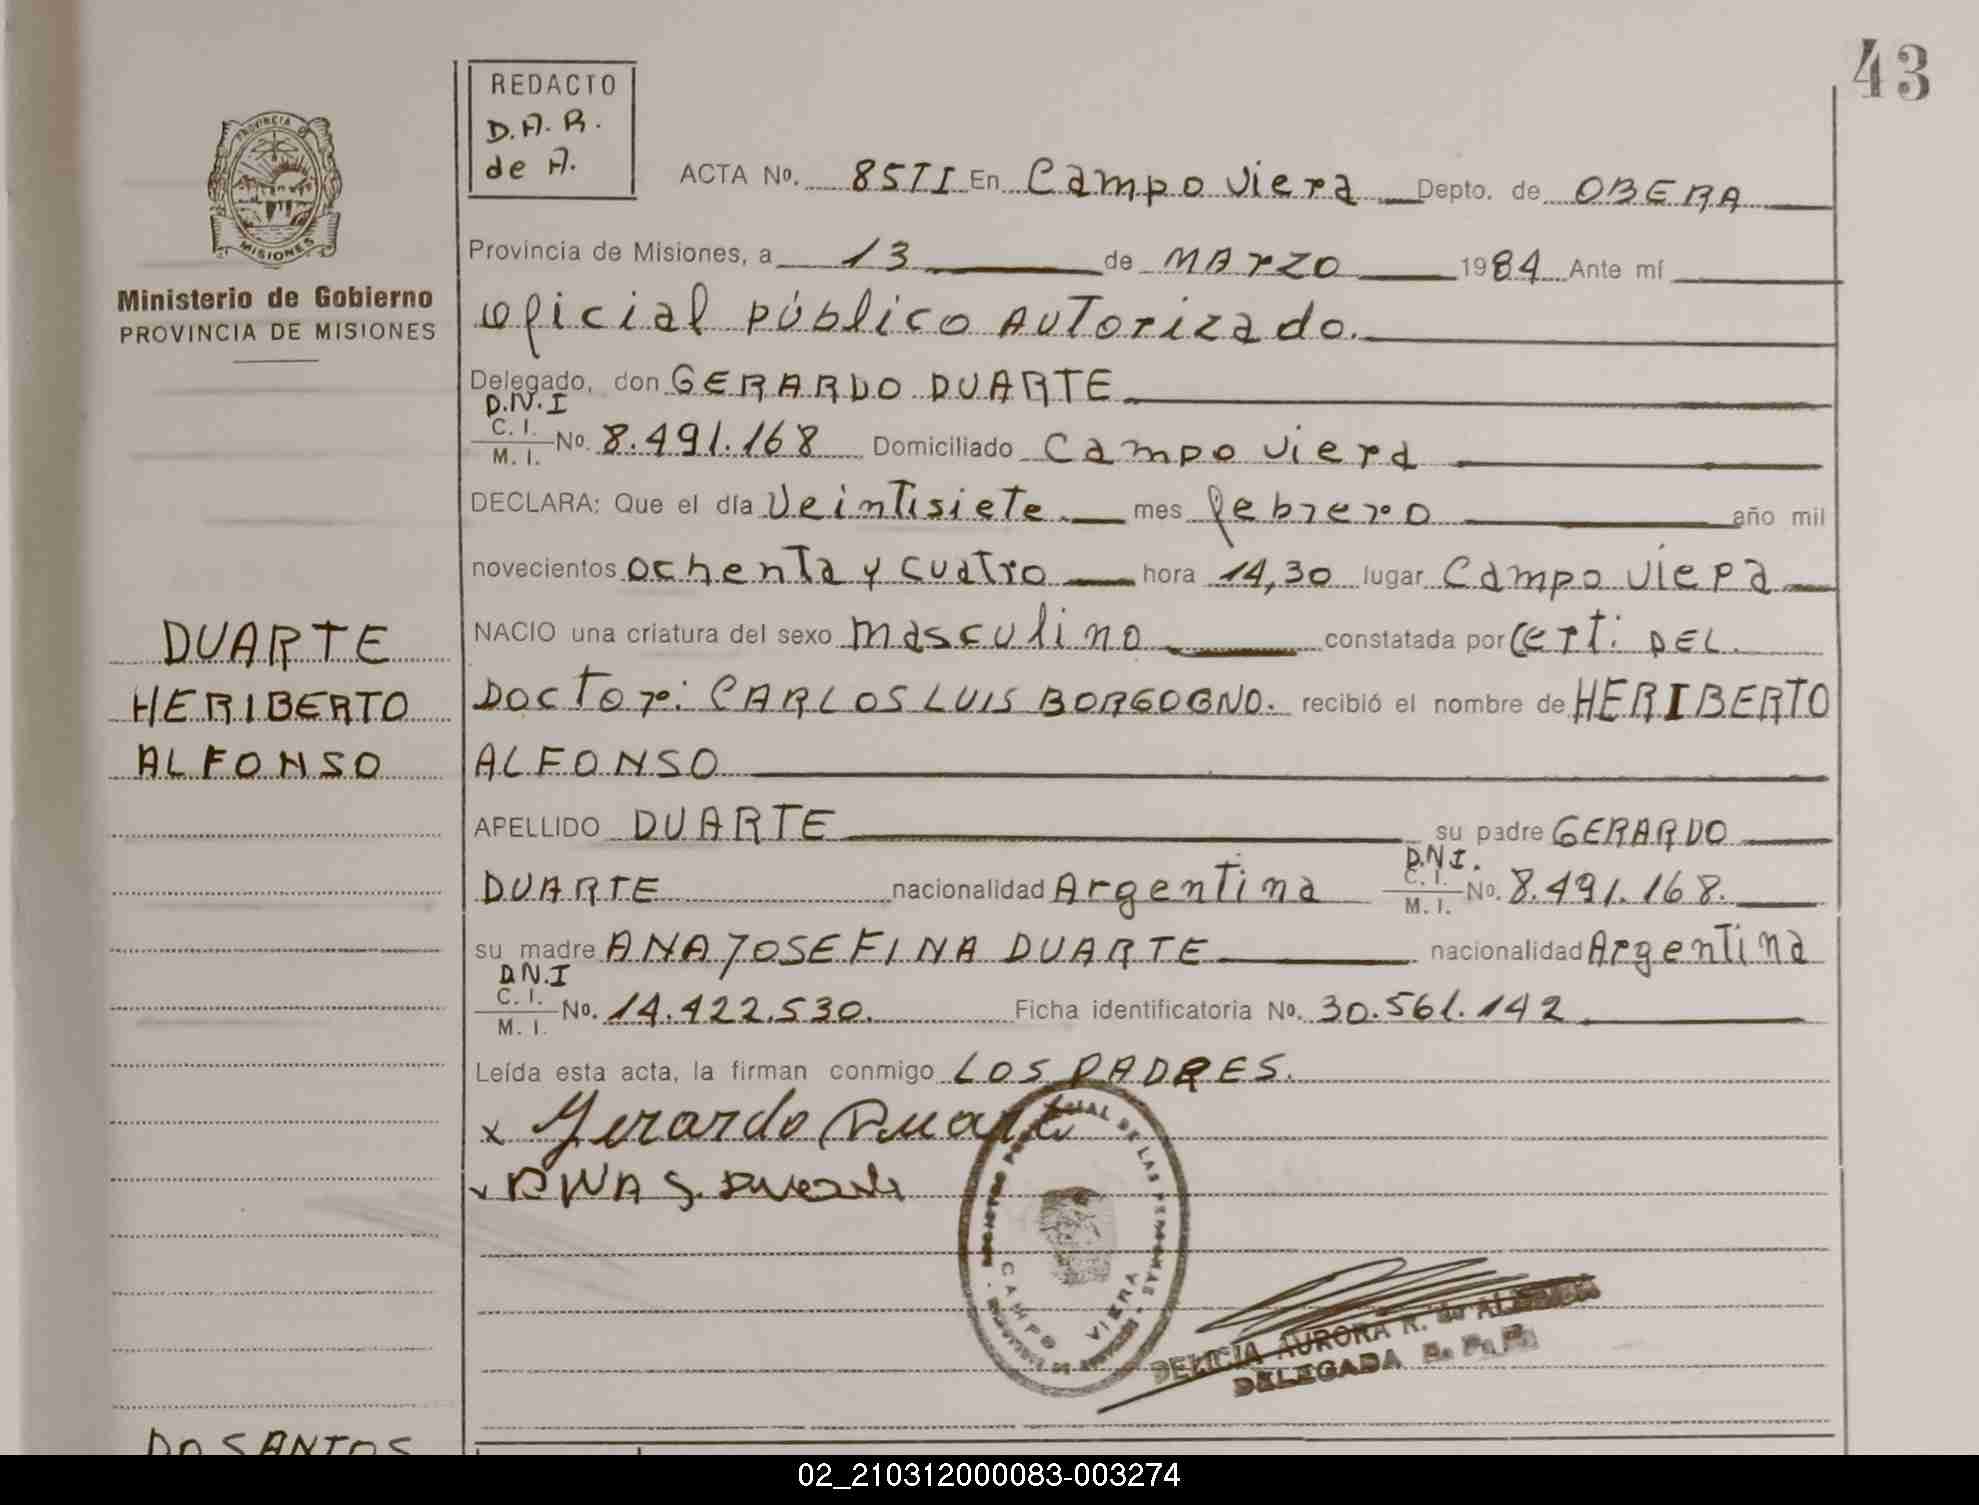 43
REDACTO
D.A.R.
de A.
PROVINCIA DE
MISIONES
Ministerio de Gobierno
PROVINCIA DE MISIONES
ACTA No. 85TI En Campo Viera Depto. de OBERA
Provincia de Misiones, a 13 de MARZO 1984 Ante mí
Oficial público AUTorizado.
Delegado, don GERARDO DUARTE
D.N.I
C. I.
M. I. No. 8.491.168 Domiciliado Campo Viera
DECLARA: Que el día Veintisiete mes febrero año mil
novecientos ochenta y cuatro hora 14,30 lugar Campo Viera
NACIO una criatura del sexo masculino constatada por Certi. DEL.
DOCTOr: CARLOS LUIS BORGOGNO. recibió el nombre de HERIBERTO
ALFONSO
DUARTE
HERIBERTO
ALFONSO
APELLIDO DUARTE su padre GERARDO
DUARTE nacionalidad Argentina D.N.I. C. I. M. I. No. 8.491.168.
su madre ANA JOSEFINA DUARTE nacionalidad Argentina
D.N.I
C. I.
M. I. No. 14.422.530. Ficha identificatoria No. 30.561.142
Leída esta acta, la firman conmigo LOS PADRES.
x Gerardo Duarte
x ANA J. Duarte
DE LAS PERSONAS
CAMPO VIERA
DELICIA AURORA R. de
DELEGADA R. P. P.
DO SANTOS
02_210312000083-003274